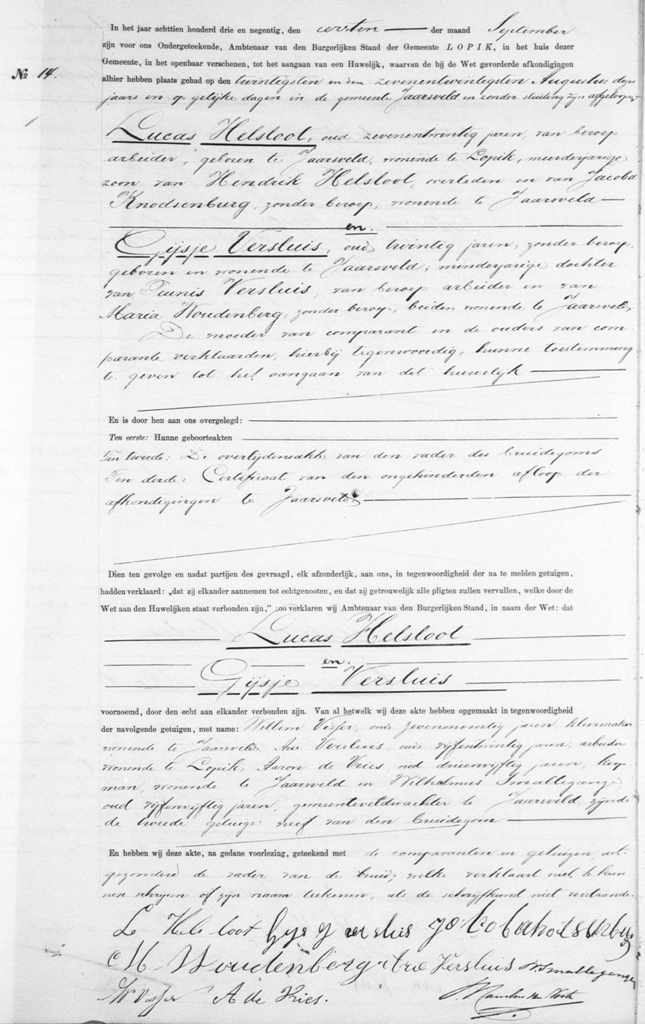 In het jaar achttien honderd drie en negentig, den eersten der maand September
zijn voor ons Ondergeteekende, Ambtenaar van den Burgerlijken Stand der Gemeente LOPIK, in het huis dezer
Gemeente, in het openbaar verschenen, tot het aangaan van een Huwelijk, waarvan de bij de Wet gevorderde afkondigingen
No 14.
alhier hebben plaats gehad op den twintigsten en den zevenentwintigsten Augustus dezes
jaars en op gelijke dagen in de gemeente Jaarsveld en zonder stuiting zijn afgeloopen,
Lucas Helsloot, oud zevenentwintig jaren, van beroep
arbeider, geboren te Jaarsveld, wonende te Lopik, meerderjarige
zoon van Hendrik Helsloot, overleden en van Jacoba
Knodsenburg, zonder beroep, wonende te Jaarsveld
en
Gijsje Versluis, oud twintig jaren, zonder beroep,
geboren en wonende te Jaarsveld, minderjarige dochter
van Teunis Versluis, van beroep arbeider en van
Maria Woudenberg, zonder beroep, beiden wonende te Jaarsveld,
De moeder van comparant en de ouders van com
parante verklaarden, hierbij tegenwoordig, hunne toestemming
te geven tot het aangaan van dit huwelijk
En is door hen aan ons overgelegd:
Ten eerste: Hunne geboorteakten
Ten tweede: De overlijdensakte van den vader des bruidegoms
Ten derde: Certificaat van den ongehinderden afloop der
afkondigingen te Jaarsveld
Dien ten gevolge en nadat partijen des gevraagd, elk afzonderlijk, aan ons, in tegenwoordigheid der na te melden getuigen,
hadden verklaard: „dat zij elkander aannemen tot echtgenooten, en dat zij getrouwelijk alle pligten zullen vervullen, welke door de
Wet aan den Huwelijken staat verbonden zijn,” zoo verklaren wij Ambtenaar van den Burgerlijken Stand, in naam der Wet: dat
Lucas Helsloot
en
Gijsje Versluis
voornoemd, door den echt aan elkander verbonden zijn. Van al hetwelk wij deze akte hebben opgemaakt in tegenwoordigheid
der navolgende getuigen, met name: Willem Visser, oud jaren, kleermaker
wonende te Jaarsveld, Arie Versluis, oud vijfentwintig jaren, arbeider
wonende te Lopik, Aaron de Vries, oud jaren, koop
man, wonende te Jaarsveld en Wilhelmus Smallegange
oud vijfenvijftig jaren, gemeenteveldwachter te Jaarsveld zijnde
de tweede getuige neef van den bruidegom
En hebben wij deze akte, na gedane voorlezing, geteekend met de comparanten en getuigen, uit
gezonderd de vader van de bruid, welke verklaart niet te kun
nen schrijven of zijn naam teekenen, als de schrijfkunst niet verstaande.
L Helsloot Gysje versluis
M Woudenberg Arie Versluis W Smallegange
W Visser A de Vries.